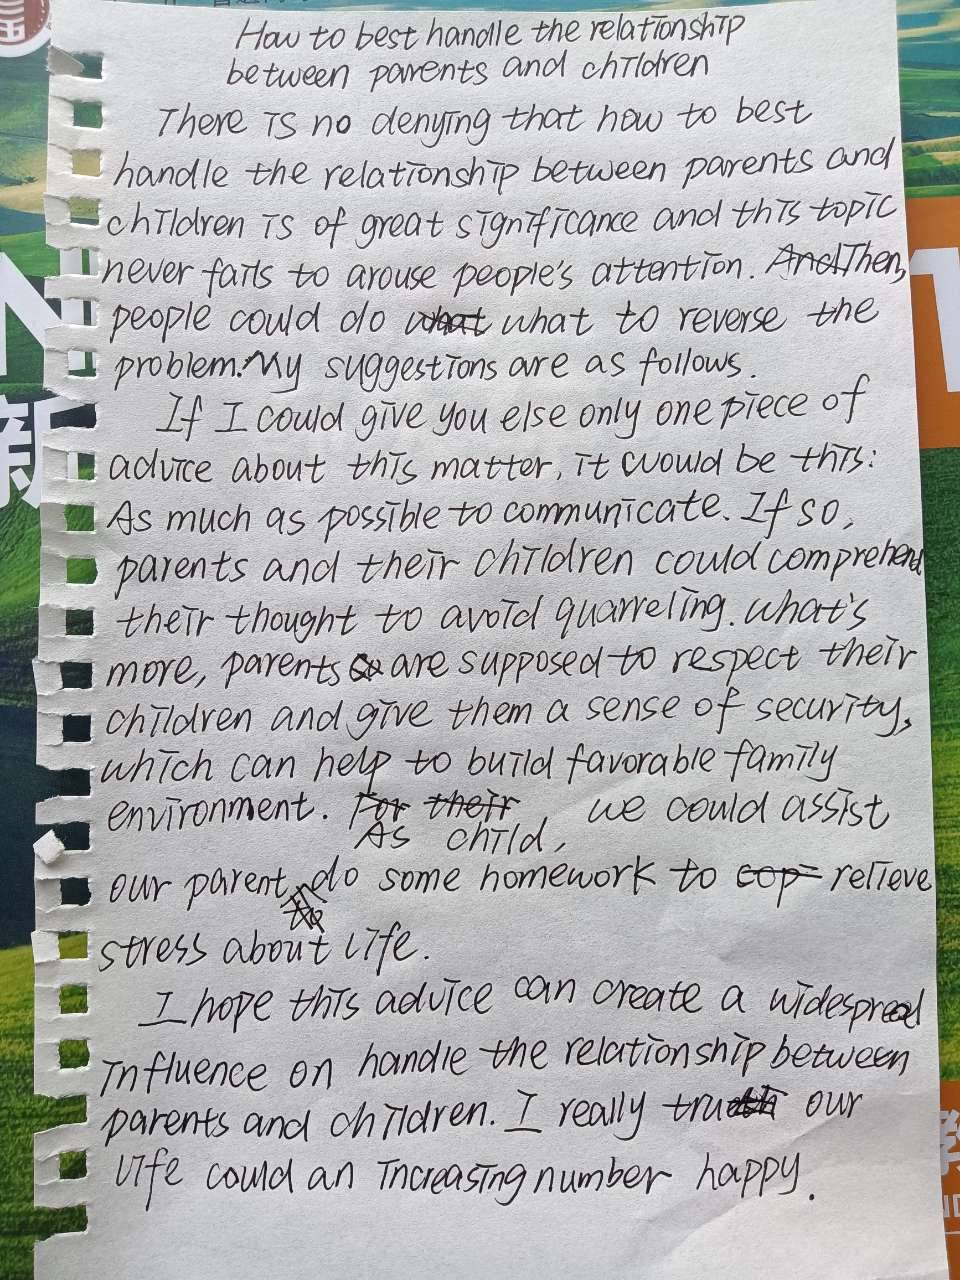 How to best handle the relationship
between parents and children
There is no denying that how to best
handle the relationship between parents and
children is of great significance and this topic
never fails to arouse people's attention. And Then,
people could do what what to reverse the
problem. My suggestions are as follows.
If I could give you else only one piece of
advice about this matter, it would be this:
As much as possible to communicate. If so,
parents and their children could comprehend
their thought to avoid quarreling. What's
more, parents are supposed to respect their
children and give them a sense of security,
which can help to build favorable family
environment. For their we could assist
As child,
our parent do some homework to cop relieve
to
stress about life.
I hope this advice can create a widespread
influence on handle the relationship between
parents and children. I really our
life could an increasing number happy.
新